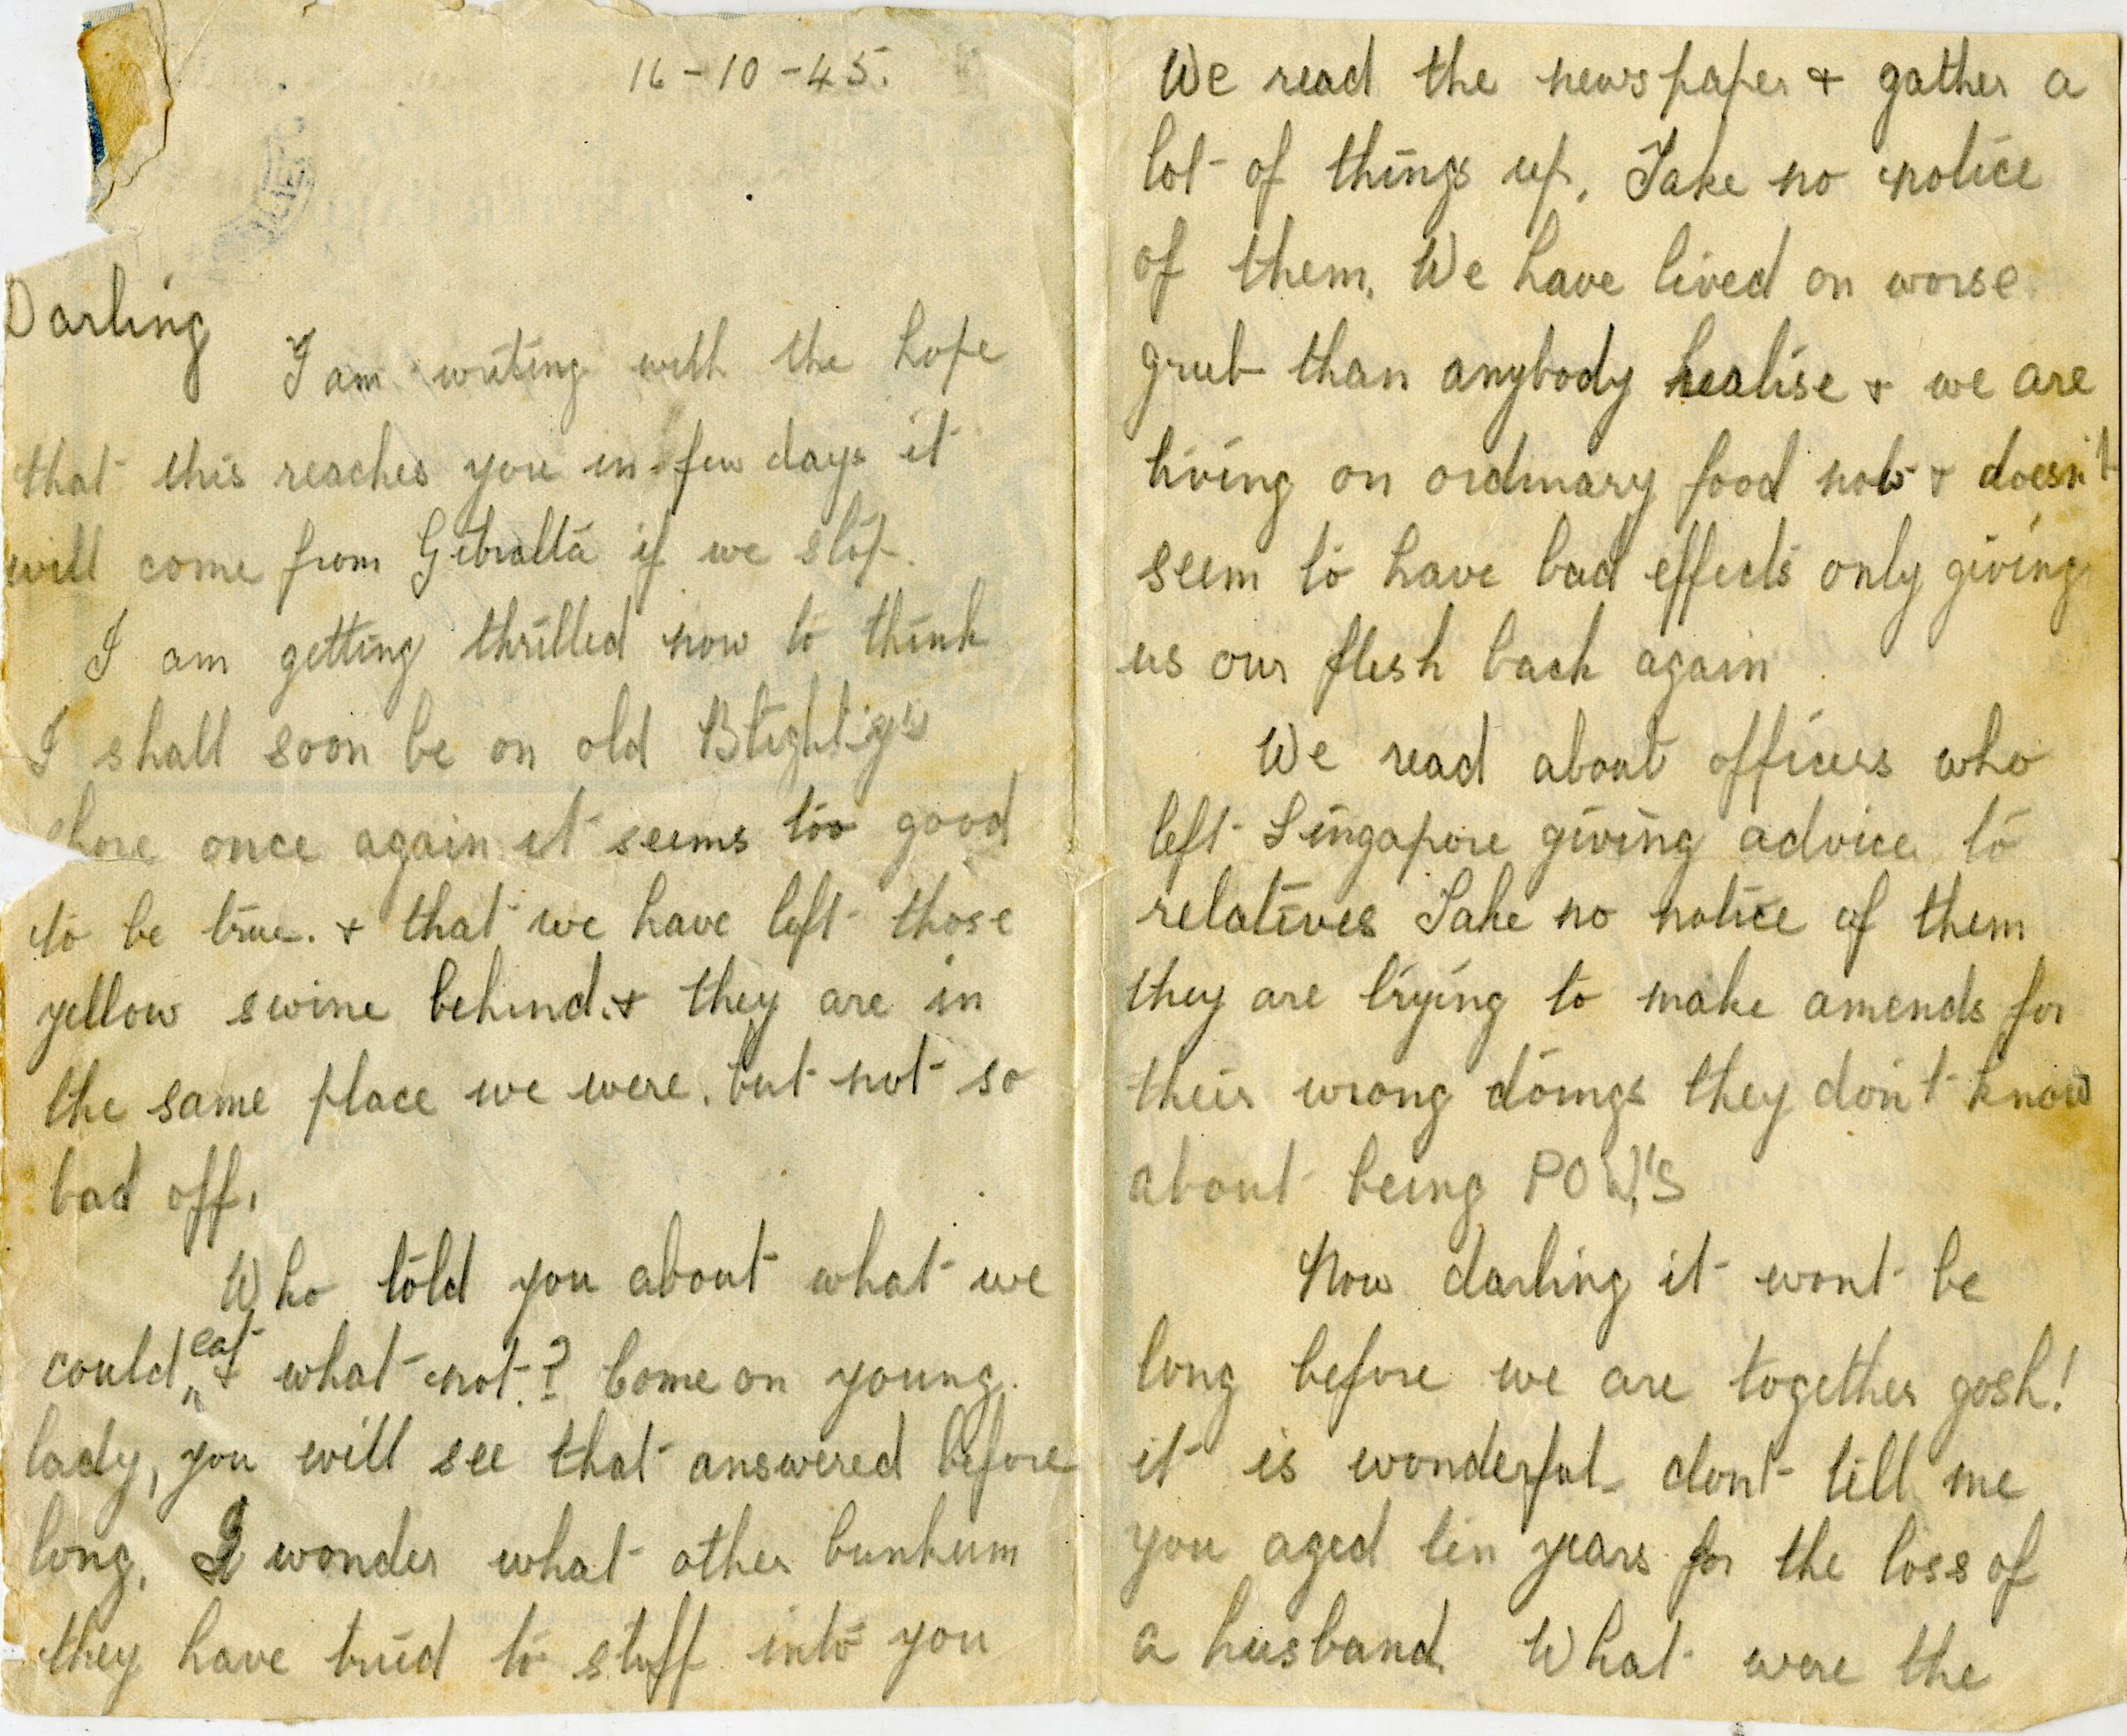 16-10-45.
Darling
I am writing with the hope
that this reaches you in few days it
will come from Gibralta if we stop.
I am getting thrilled now to think
I shall soon be on old Blighty's
shore once again it seems too good
to be true. & that we have left those
yellow swine behind. & they are in
the same place we were. but not so
bad off.
Who told you about what we
could eat & what not? Come on young
lady, you will see that answered before
long. I wonder what other bunkum
they have tried to stuff into you
We read the newspaper & gather a
lot of things up. Take no notice
of them. We have lived on worse
grub than anybody realise & we are
living on ordinary food now & doesn't
seem to have bad effects only giving
us our flesh back again
We read about officers who
left Singapore giving advice to
relatives Take no notice of them
they are trying to make amends for
their wrong doings they don't know
about being POW's
Now darling it wont be
long before we are together gosh!
it is wonderful dont tell me
you aged ten years for the loss of
a husband. What were the